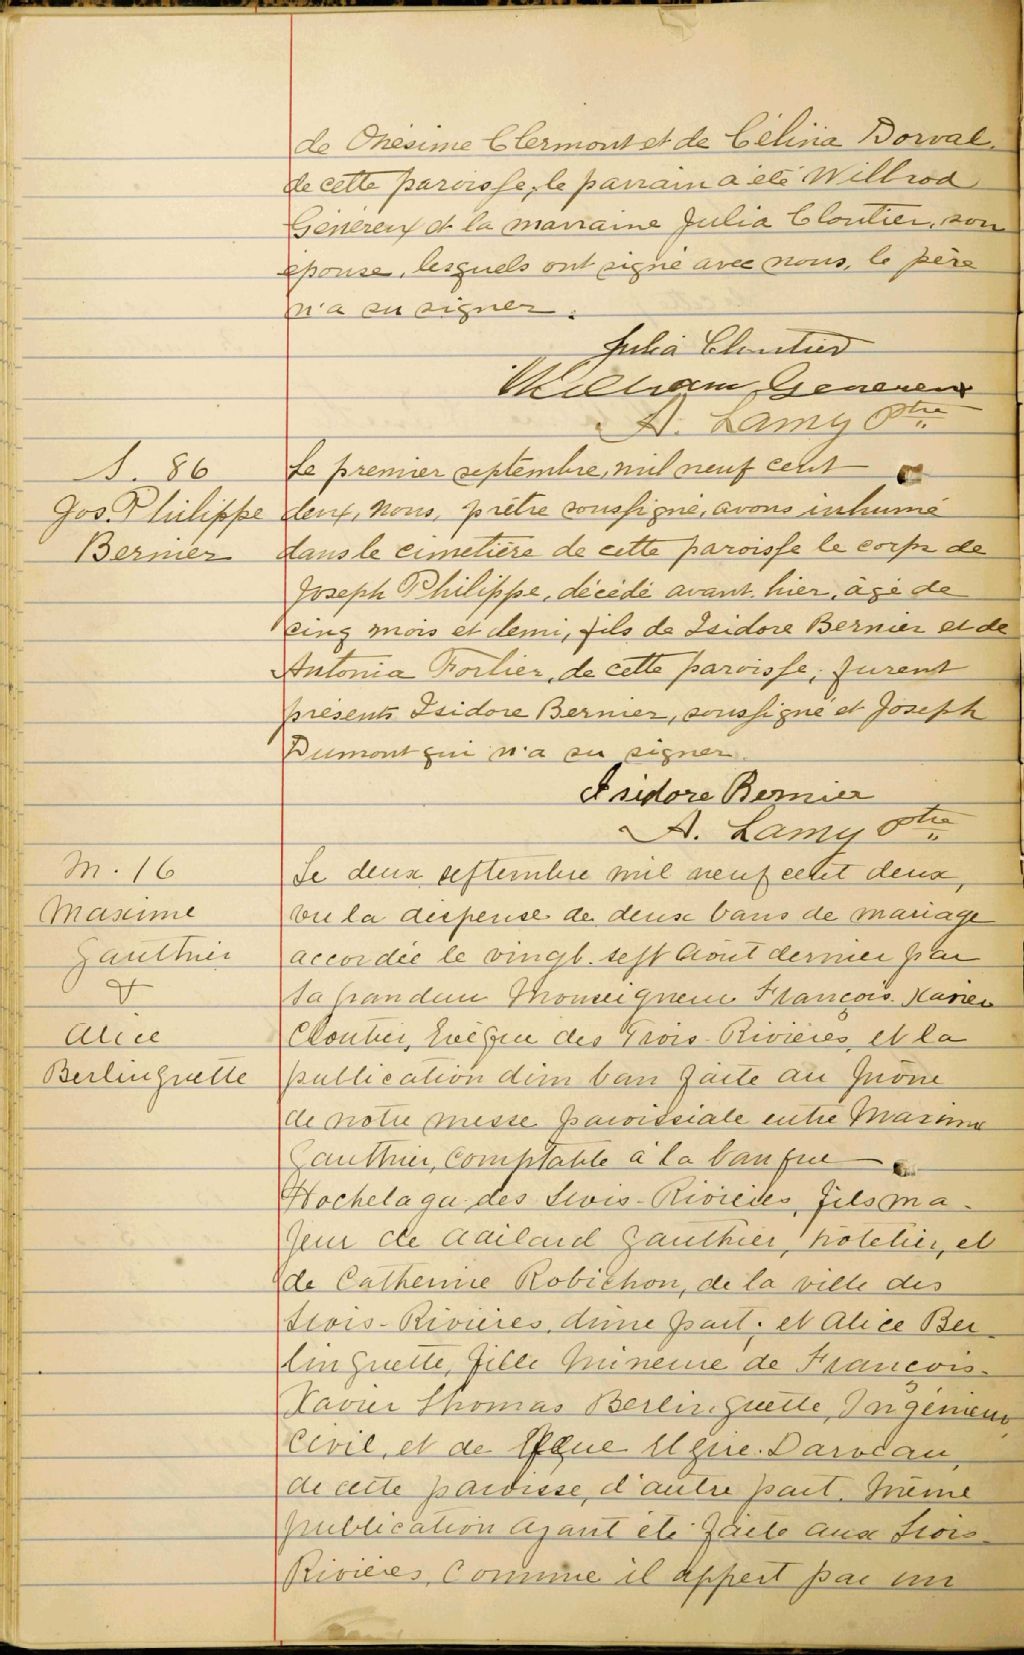 de Onésime Clermont et de Célina Dorval,
de cette paroisse; le parrain a été Willrod
Généreux et la marraine Julia Cloutier, son
épouse, lesquels ont signé avec nous, le père
n'a su signer.
Julia Cloutier
William Genereux
A. Lamy Ptre
S. 86
Jos. Philippe
Bernier
Le premier septembre, mil neuf cent
deux, nous, prêtre soussigné, avons inhumé
dans le cimetière de cette paroisse le corps de
Joseph Philippe, décédé avant-hier, âgé de
cinq mois et demi, fils de Isidore Bernier et de
Antonia Fortier, de cette paroisse; furent
présents Isidore Bernier, soussigné et Joseph
Dumont qui n'a su signer.
Isidore Bernier
A. Lamy Ptre
M. 16
Maxime
Gauthier
&
Alice
Berlinguette
Le deux septembre mil neuf cent deux,
vu la dispense de deux bans de mariage
accordée le vingt-sept août dernier par
Sa grandeur Monseigneur François-Xavier
Cloutier, Evêque des Trois-Rivières, et la
publication d'un ban faite au prône
de notre messe paroissiale entre Maxime
Gauthier, comptable à la banque
Hochelaga des Trois-Rivières, fils ma-
jeur de Adilard Gauthier, hôtelier, et
de Catherine Robichon, de la ville des
Trois-Rivières, d'une part; et Alice Ber-
linguette, fille mineure de François-
Xavier Thomas Berlinguette, Ingénieur
Civil, et de Darveau,
de cette paroisse, d'autre part. Même
publication ayant été faite aux Trois-
Rivières, comme il appert par un